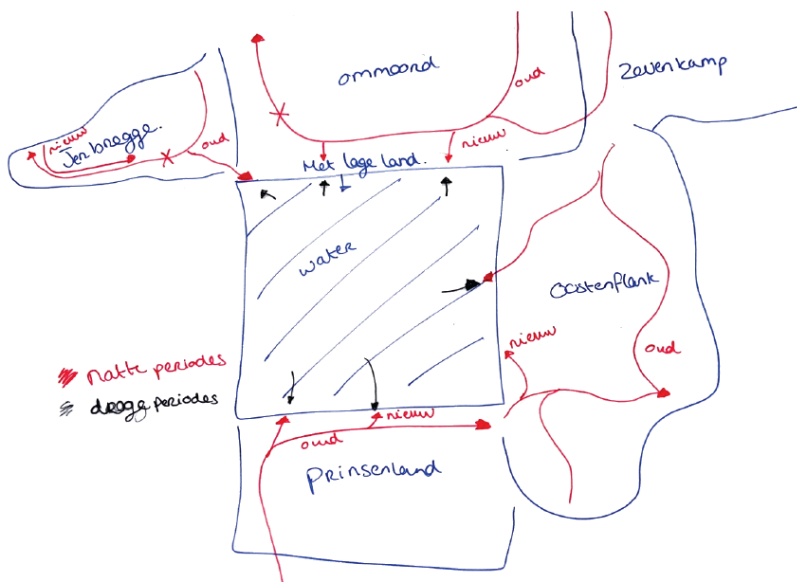 ommoord
oud
Zevenkamp
nieuw
Jerbregge.
oud
nieuw
Het lage land.
water
Oostenflank
nieuw
oud
natte periodes
droge periodes
nieuw
oud
Prinsenland